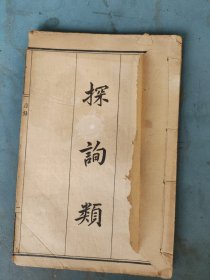 探詢類